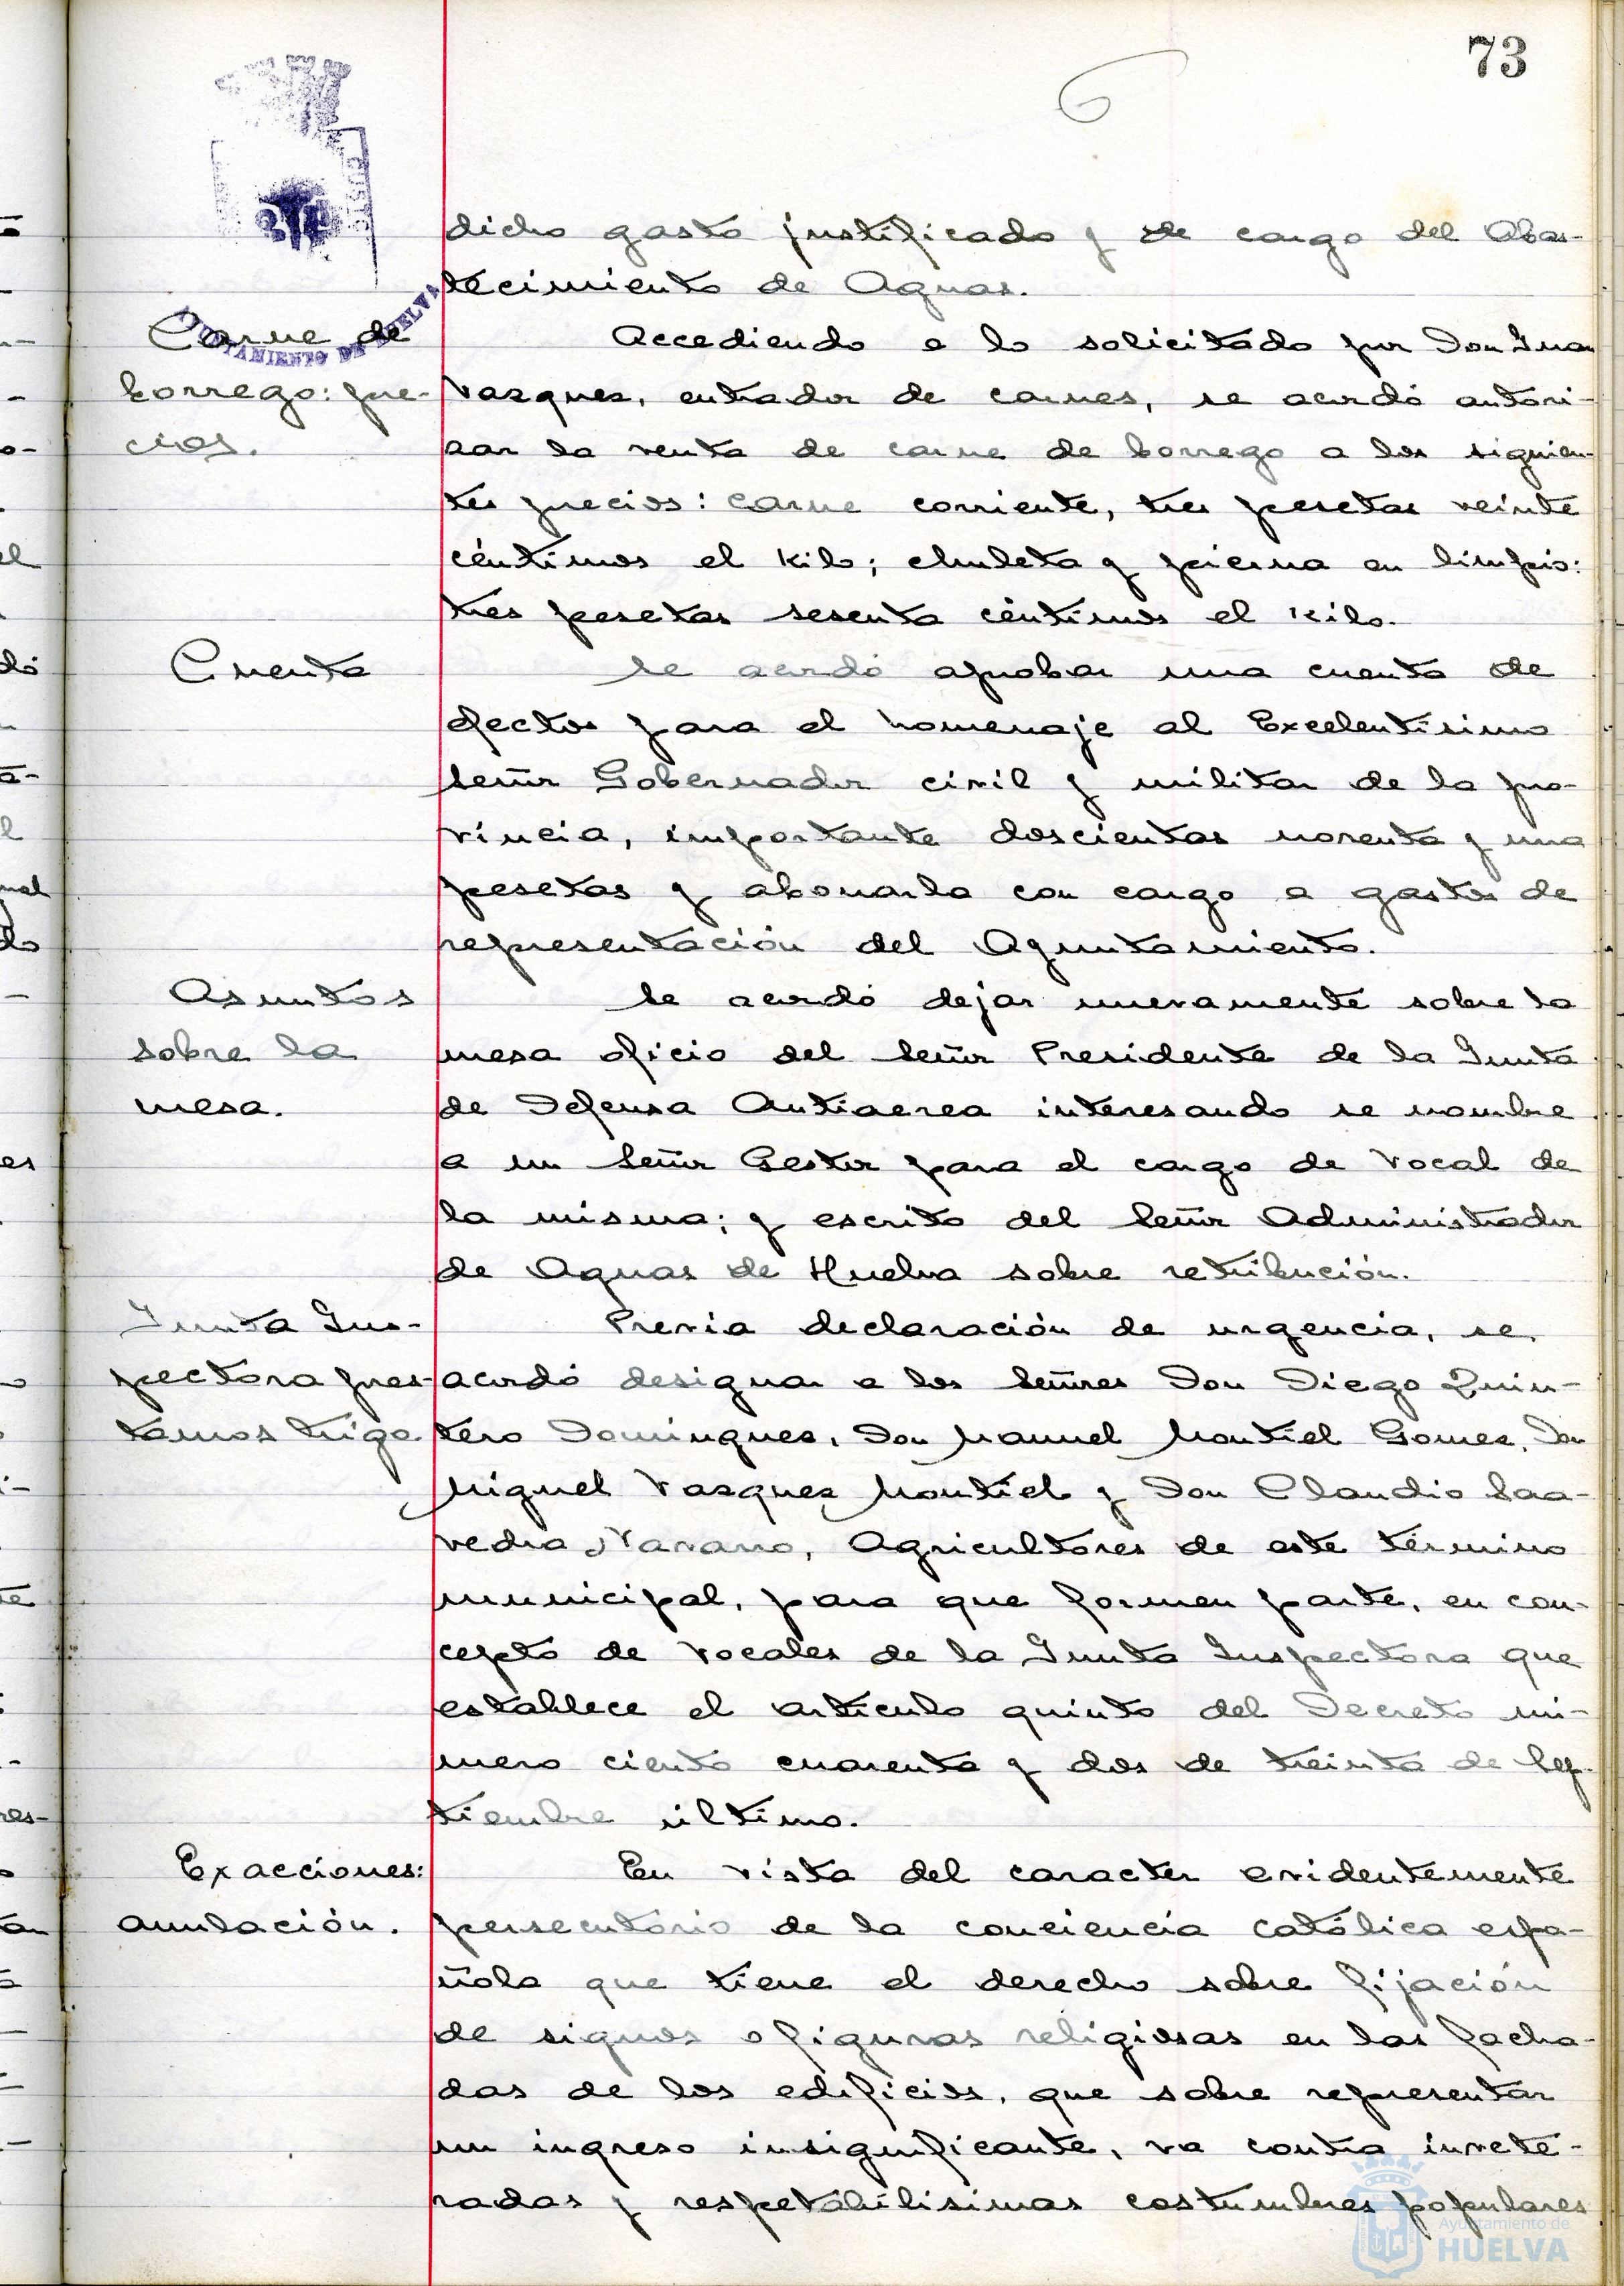 73
dicho gasto justificado y de cargo del Abas-
tecimiento de Aguas.
AYUNTAMIENTO DE HUELVA
Carne de
borrego: pre-
cios.
Accediendo a lo solicitado por Don Juan
Vazquez, entrador de carnes, se acordó autori-
zar la venta de carne de borrego a los siguien-
tes precios: carne corriente, tres pesetas veinte
céntimos el kilo; chuleta y pierna en limpio:
tres pesetas sesenta céntimos el kilo.
Cuenta
Se acordó aprobar una cuenta de
efectos para el homenaje al Excelentísimo
Señor Gobernador civil y militar de la pro-
vincia, importante doscientas noventa y una
pesetas y abonarla con cargo a gastos de
representación del Ayuntamiento.
Asuntos
sobre la
mesa.
Se acordó dejar nuevamente sobre la
mesa oficio del Señor Presidente de la Junta
de Defensa Antiaerea interesando se nombre
a un Señor Gestor para el cargo de Vocal de
la misma; y escrito del Señor Administrador
de Aguas de Huelva sobre retribución.
Junta Ins-
pectora pres-
tamos trigo.
Previa declaración de urgencia, se
acordó designar a los Señores Don Diego Quin-
tero Dominguez, Don Manuel Montiel Gomez, Don
Miguel Vazquez Montiel y Don Claudio Saa-
vedra Navarro, Agricultores de este término
municipal, para que formen parte, en con-
cepto de Vocales de la Junta Inspectora que
establece el artículo quinto del Decreto nú-
mero ciento cuarenta y dos de treinta de Sep-
tiembre último.
Exacciones:
anulación.
En vista del caracter evidentemente
persecutorio de la conciencia católica espa-
ñola que tiene el derecho sobre fijación
de signos o figuras religiosas en las facha-
das de los edificios, que sobre representar
un ingreso insignificante, va contra invete-
radas y respetabilísimas costumbres populares
Ayuntamiento de
HUELVA